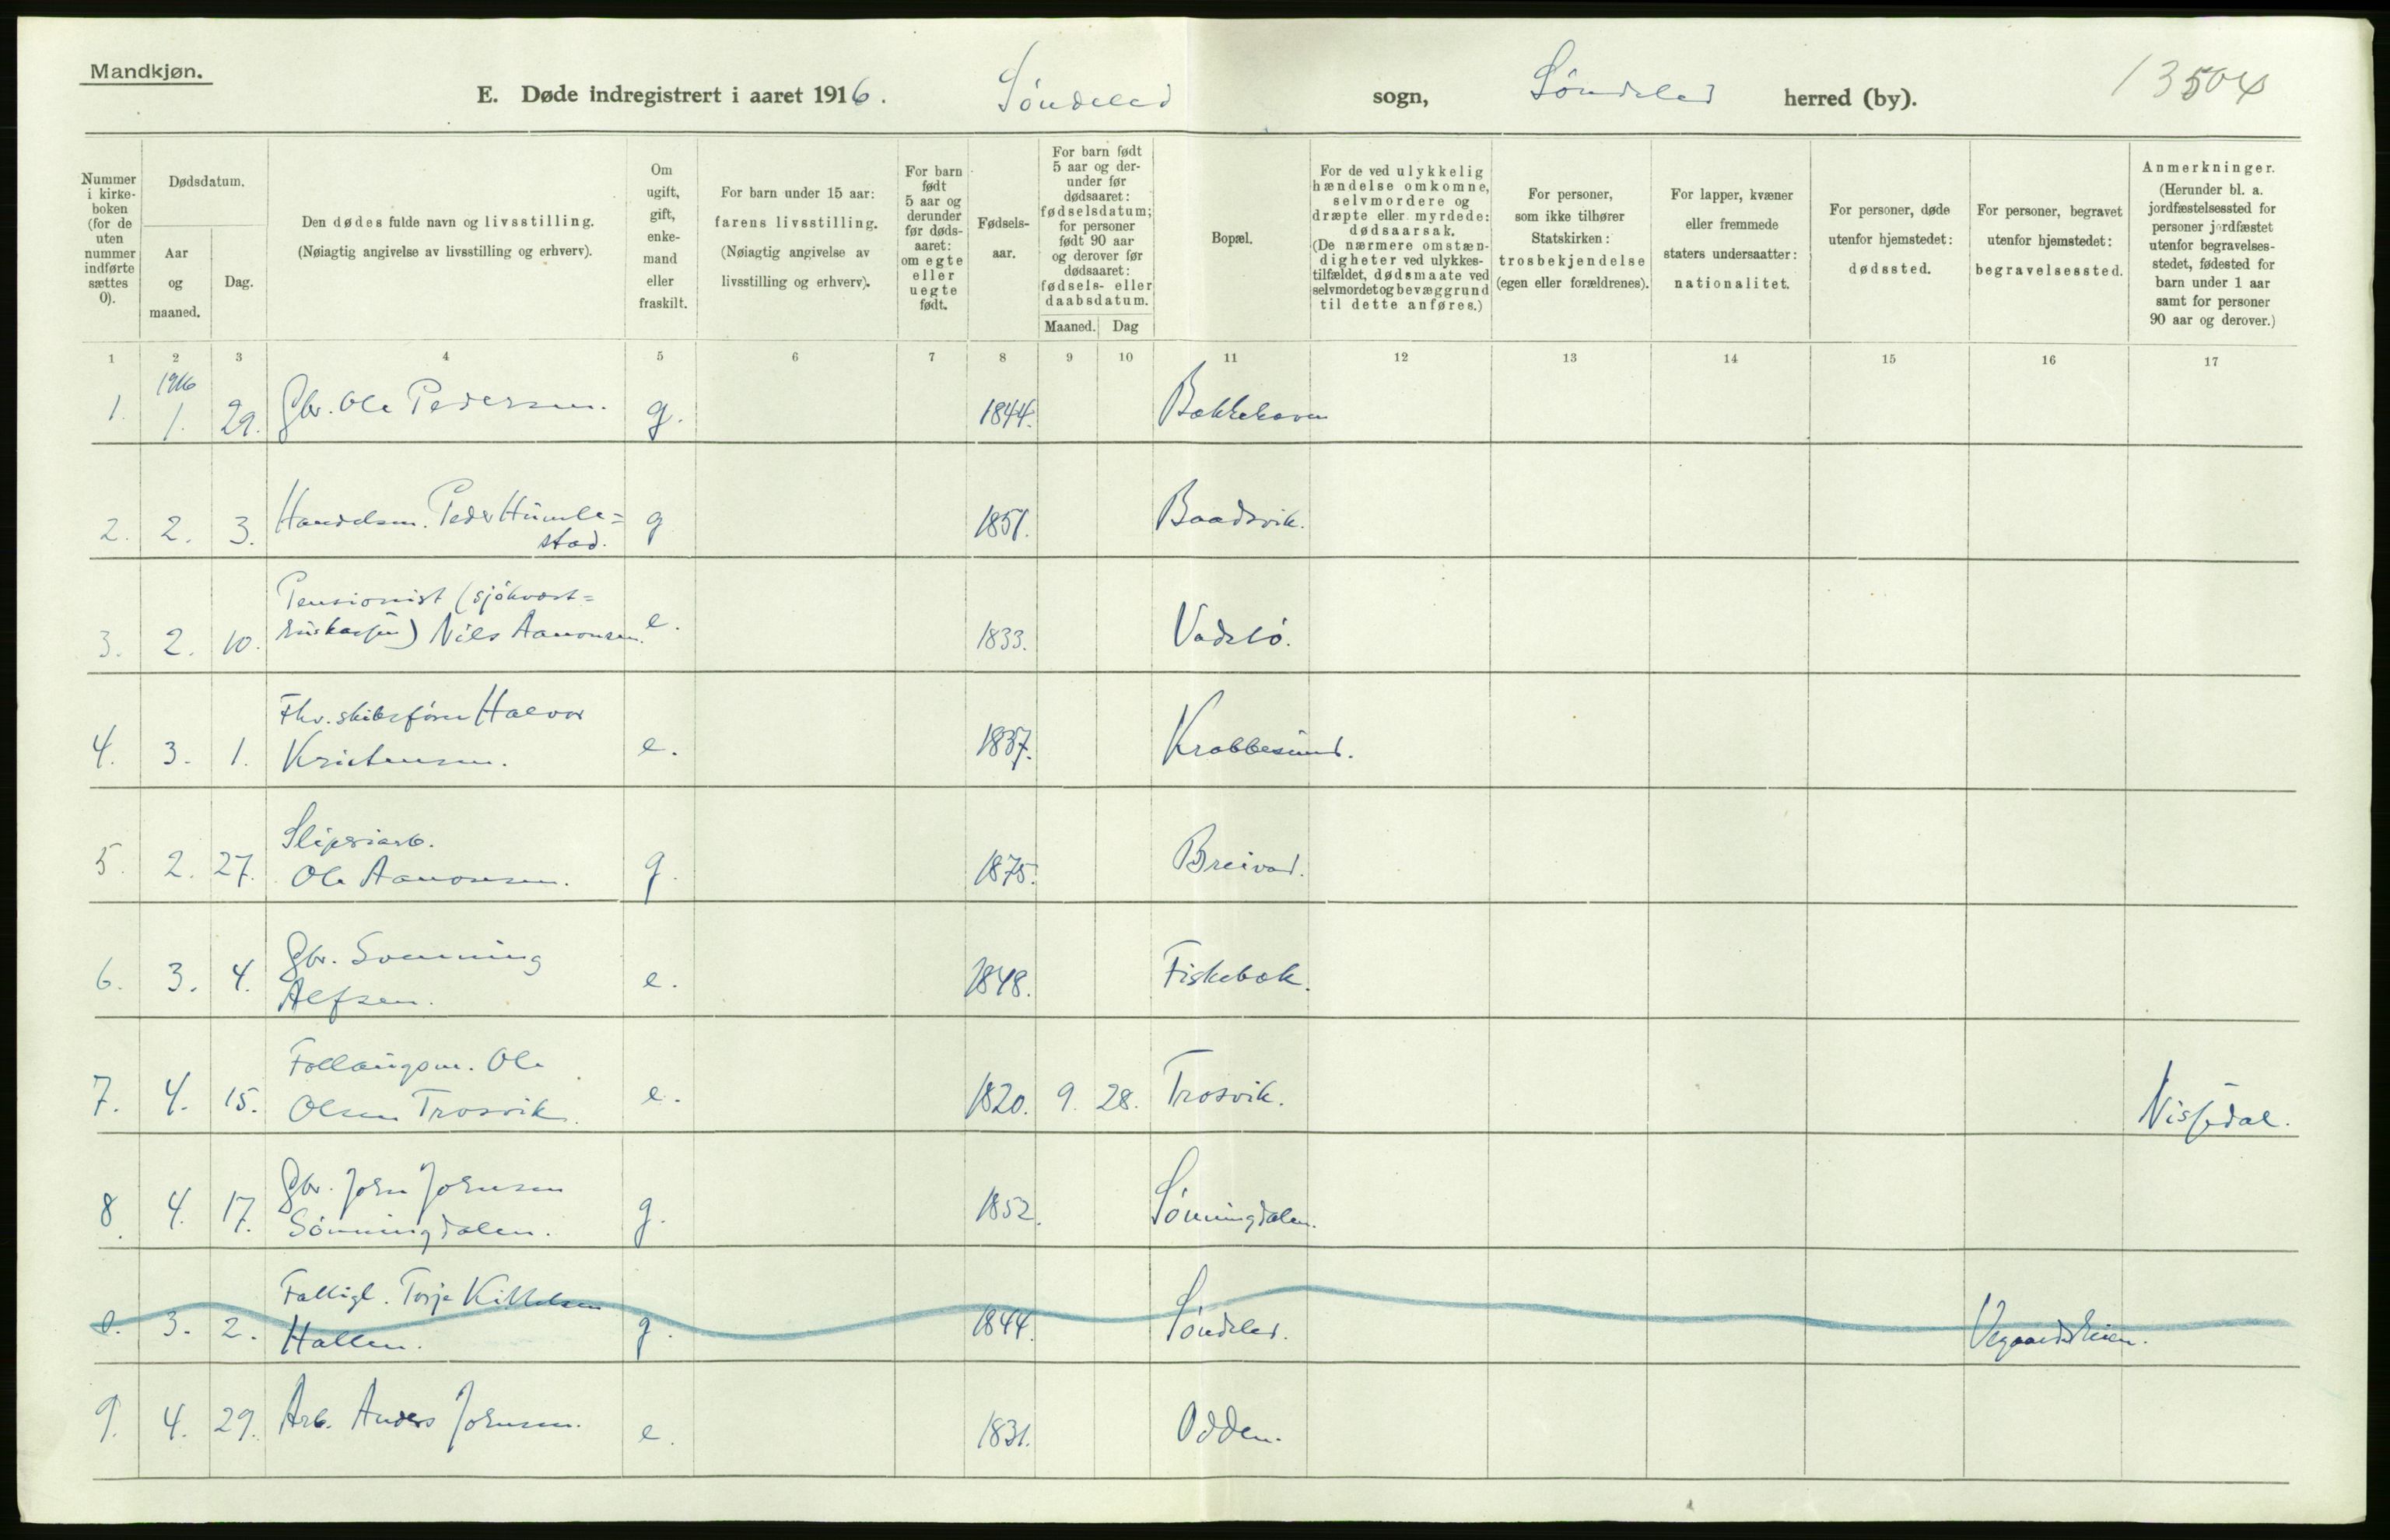 Mandkjøn.
E. Døde indregistrert i aaret 1916. Søndeled sogn, Søndeled herred (by).
13504
Nummer i kirke-boken (for de uten nummer indførte sættes 0).
Dødsdatum.
Aar og maaned.
Dag.
Den dødes fulde navn og livsstilling.
(Nøiagtig angivelse av livsstilling og erhverv).
Om ugift, gift, enke-mand eller fraskilt.
For barn under 15 aar: farens livsstilling.
(Nøiagtig angivelse av livsstilling og erhverv).
For barn født 5 aar og derunder før døds-aaret: om egte eller uegte født.
Fødsels-aar.
For barn født 5 aar og der-under før dødsaaret: fødselsdatum; for personer født 90 aar og derover før dødsaaret: fødsels- eller daabsdatum.
Maaned. Dag
Bopæl.
For de ved ulykkelig hændelse omkomne, selvmordere og dræpte eller myrdede: dødsaarsak.
(De nærmere omstæn-digheter ved ulykkes-tilfældet, dødsmaate ved selvmordet og bevæggrund til dette anføres.)
For personer, som ikke tilhører Statskirken: trosbekjendelse (egen eller forældrenes).
For lapper, kvæner eller fremmede staters undersaatter: nationalitet.
For personer, døde utenfor hjemstedet: dødssted.
For personer, begravet utenfor hjemstedet: begravelsessted.
Anmerkninger.
(Herunder bl. a. jordfæstelsessted for personer jordfæstet utenfor begravelses-stedet, fødested for barn under 1 aar samt for personer 90 aar og derover.)
1 2 3 4 5 6 7 8 9 10 11 12 13 14 15 16 17
1916
1. 1. 29. Gbr. Ole Pedersen. g. 1844. Bakkehaven
2. 2. 3. Handelsm. Peder Humle=
stad. g 1851. Baadsvik.
3. 2. 10. Pensionist (sjökvast=
) Nils Aanonsen. e. 1833. Vadelö.
4. 3. 1. Fhv. skibsförer Halvor
Kristensen. e. 1837. Krabbesund.
5. 2. 27. Sliperiarb.
Ole Aanonsen. g. 1875. Breivad.
6. 3. 4. Gbr. Svenning
Alfsen. e. 1848. Fiskebæk.
7. 4. 15. Follaugsm. Ole
Olsen Trosvik. e. 1820. 9. 28. Trosvik. Nissedal.
8. 4. 17. Gbr. John Johnsen
Sönningdalen. g. 1852. Sönningdalen.
0. 3. 2. Fattigl. Torje Kittelsen
Hallen. g. 1844. Söndeled. Vegaardsheien.
9. 4. 29. Arb. Anders Johnsen. e. 1831. Odden.